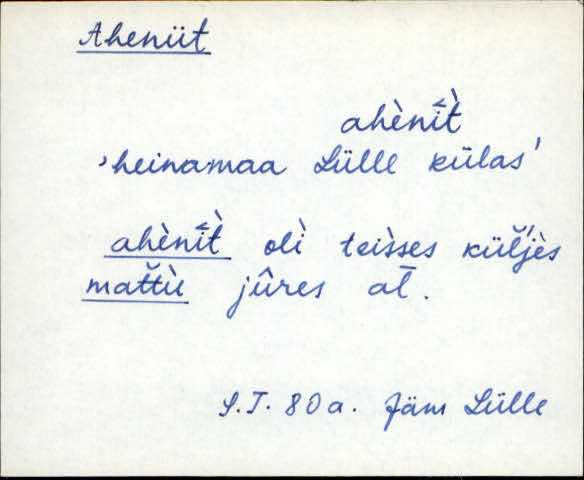 Aheniit
ahènī̀t
'heinamaa Lülle külas'
ahènī̀t olì teìsses külʹjès
mattù jûres al̄.
S.T. 80a. Jäm Lülle